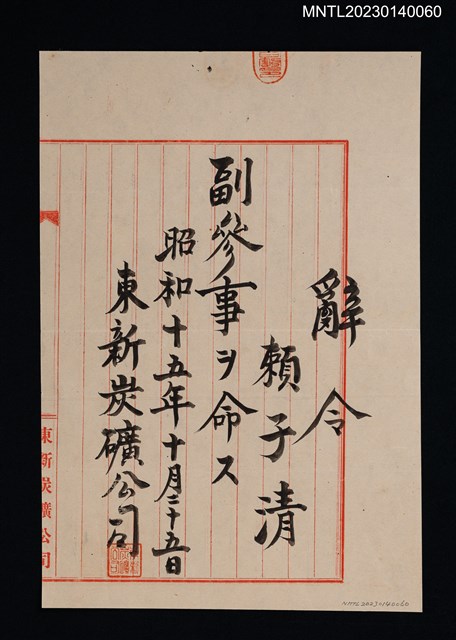 MNTL20230140060
辭令
賴子清
副參事ヲ命ス
昭和十五年十月二十五日
東新炭礦公司
東新炭礦公司
MNTL20230140060